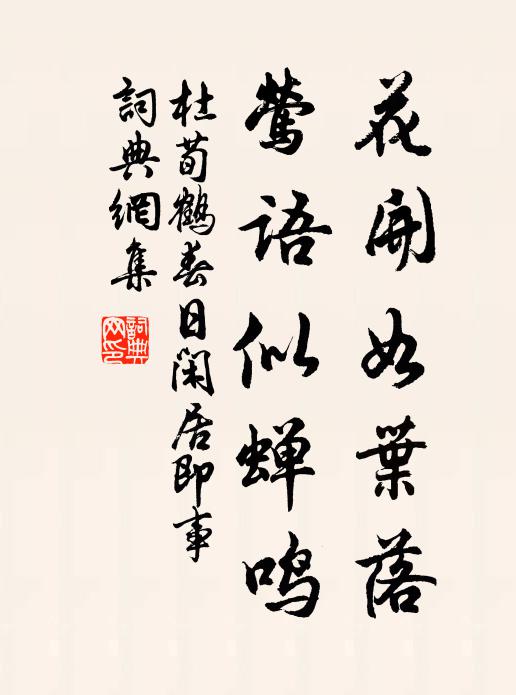 花開如葉落
鶯語似蝉鳴
杜荀鶴春日閑居即事
詞典網集
詞典网印